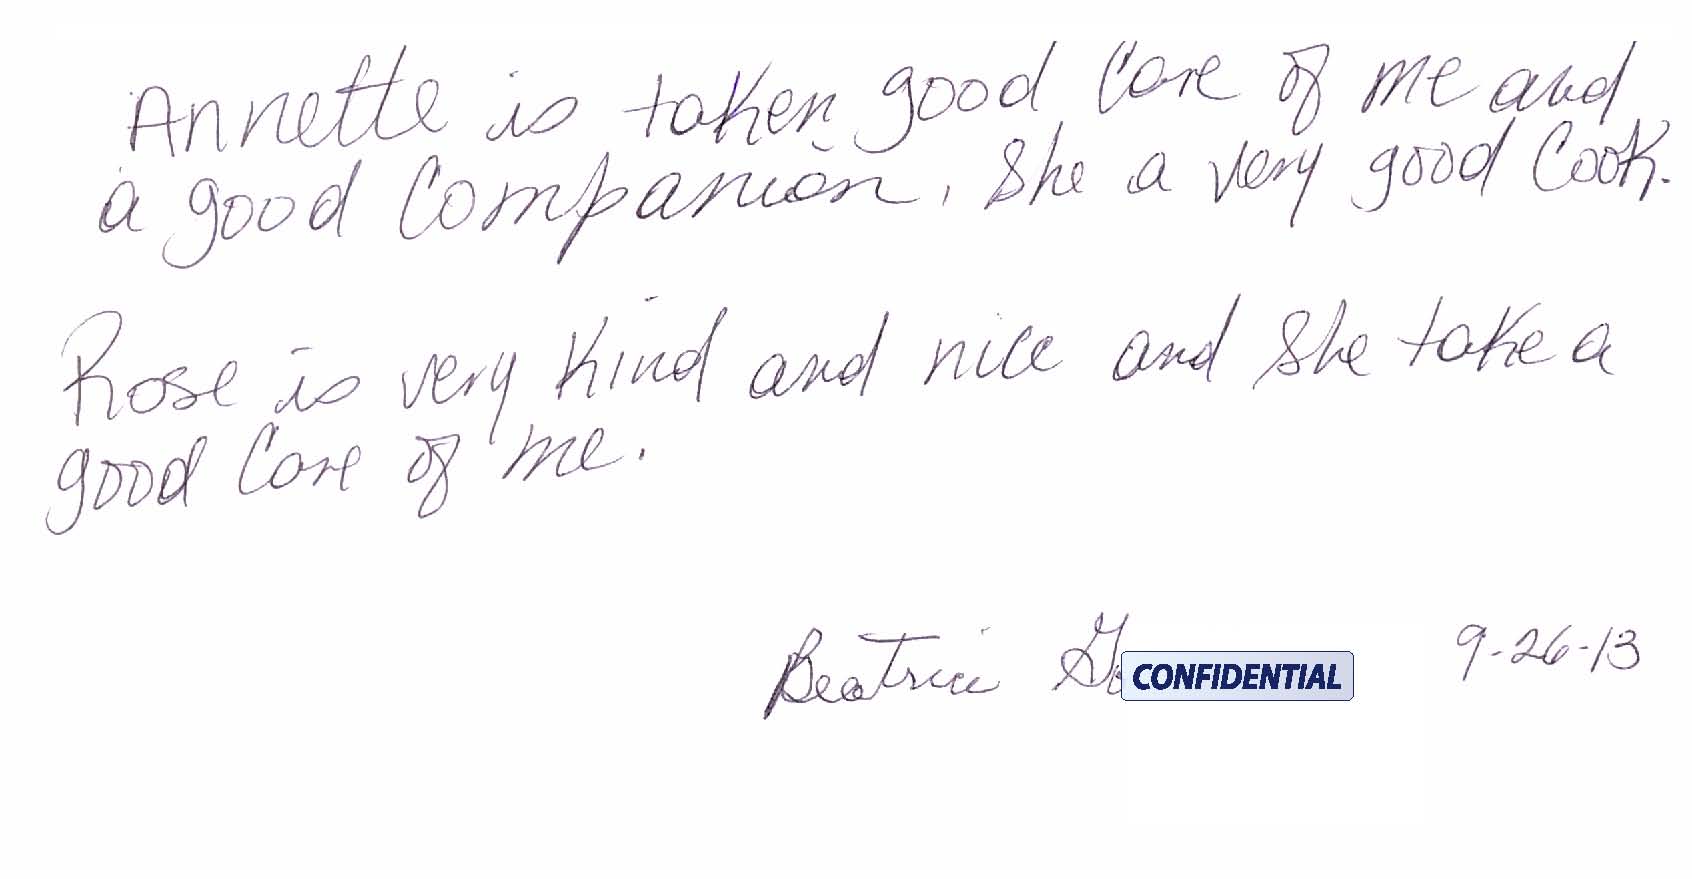 Annette is taken good Care of me and
a good Companion. She a very good Cook.
Rose is very Kind and nice and She take a
good Care of me.
Beatrice CONFIDENTIAL 9-26-13